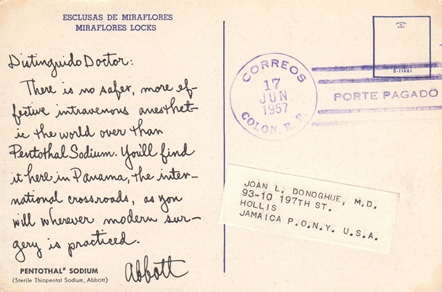 ESCLUSAS DE MIRAFLORES
MIRAFLORES LOCKS
Distinguido Doctor:
There is no safer, more ef-
fective intravenous anesthet-
ic the world over than
Pentothal Sodium. You'll find
it here in Panama, the inter-
national crossroads, as you
will wherever modern sur-
gery is practiced.
Abbott
PENTOTHAL® SODIUM
(Sterile Thiopental Sodium, Abbott)
CORREOS
17
JUN
1957
COLON, R. P.
PORTE PAGADO
JOAN L. DONOGHUE, M.D.
93-10 197TH ST.
HOLLIS
JAMAICA P.O.N.Y. U.S.A.